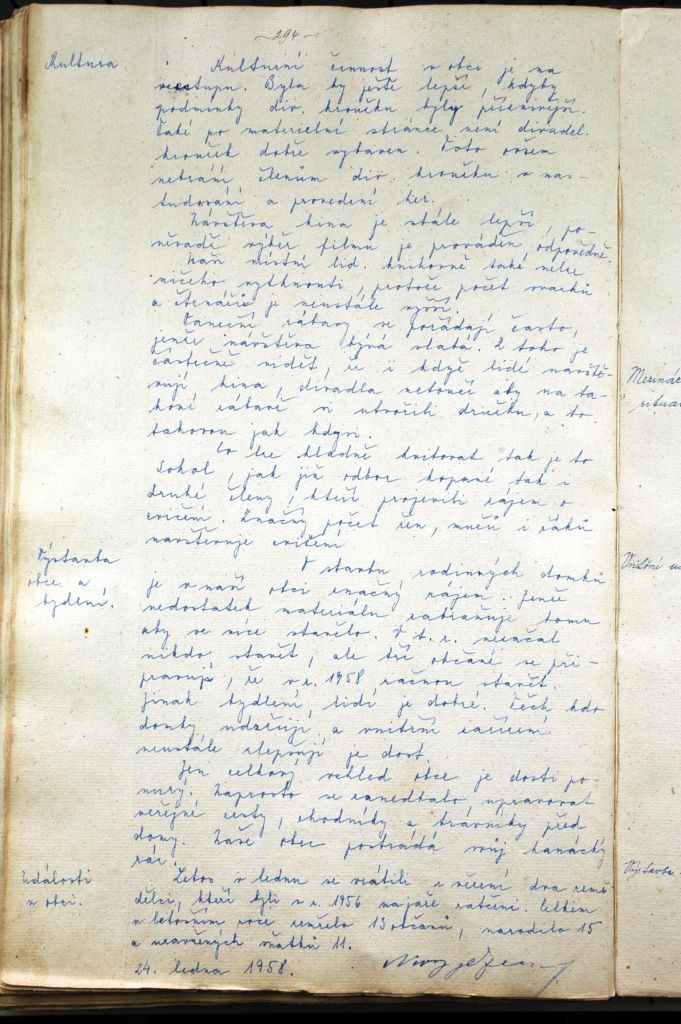 - 294 -
Kultura.
Kulturní činnost v obci je na
vzestupu. Byla by ještě lepší, kdyby
podmínky div. kroužku byly příznivější.
Také po materielní stránce není divadel.
kroužek dobře vybaven. Toto ovšem
nebrání členům div. kroužku v nas-
tudování a provedení her.
Návštěva kina je stále lepší, po-
něvadž výběr filmů je prováděn odpovědně.
Naší místní lid. knihovně také nelze
ničeho vytknouti, protože počet svazků
a čtenářů je neustále vyšší.
Taneční zábavy se pořádají často,
jenže návštěva bývá slabá. Z toho je
částečně vidět, že i když lidé navště-
vují kina, divadla netouží aby na ta-
kové zábavě si utvořili družku, a to
takovou jak kdysi.
Co lze kladně kvitovat tak je to
Sokol, jak již odbor kopané tak i
druhé členy, kteří projevili zájem o
cvičení. Značný počet žen, mužů i žáků
navštěvuje cvičení.
Výstavba
obce a
bydlení.
O stavbu rodinných domků
je v naší obci značný zájem. Jenže
nedostatek materiálu zabraňuje tomu
aby se více stavělo. V t. r. nezačal
nikdo stavět, ale tři občané se při-
pravují, že v r. 1958 začnou stavět.
Jinak bydlení lidí je dobré. Těch kdo
domky udržují a vnitřní zařízení
neustále zlepšují je dost.
Jen celkový vzhled obce je dosti po-
nurý. Naprosto se zanedbalo upravovat
veřejné cesty, chodníky a trávníky před
domy. Naše obec postrádá svůj hanácký
ráz.
Události
v obci.
Letos v lednu se vrátili z vězení dva země-
dělci, kteří byli v r. 1956 na jaře zatčeni. Celkem
v letošním roce zemřelo 13 občanů, narodilo 15
a uzavřených sňatků 11.
24. ledna 1958.
Vnitřní
Výstavba